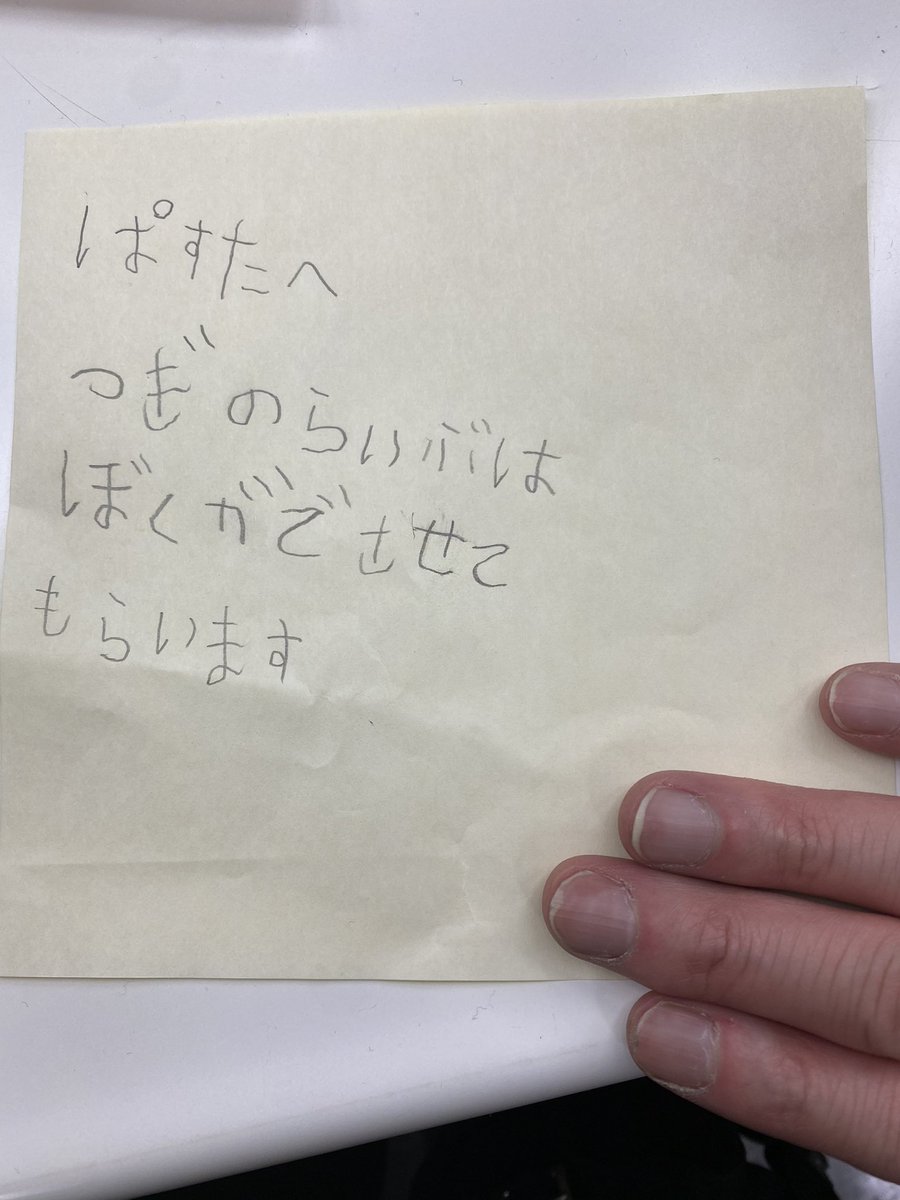 ぱすたへ
つぎのらいぶは
ぼくがでさせて
もらいます